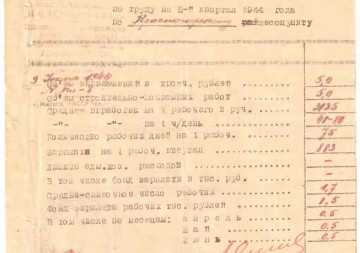 по труду на II-й квартал 1944 года
по Красногорскому райлесопункту
9 Июня 1944
в тысяч. рублей 5,0
Об'ем строительно-монтажных работ 5,0
Средняя выработка на 1 рабочего в руб.
-"- -"- на 1 ч/день
Количество рабочих дней на 1 рабоч. 75
Зарплата на 1 рабоч. квартал 183
Лимиты адм.хоз. расходов —
В том числе фонд зарплаты в тыс. руб. —
Средне-списочное число рабочих 1,7
Фонд зарплаты рабочих тыс. рублей 1,5
В том числе по месяцам: апрель 0,5
май 0,5
июнь 0,5